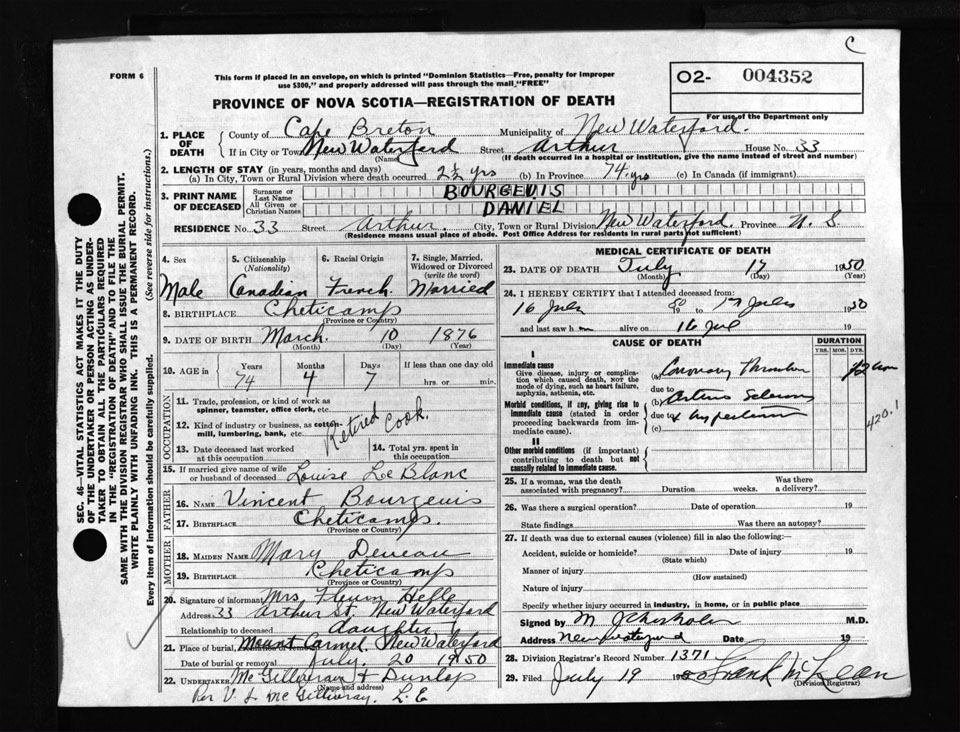 C
FORM 6
This form if placed in an envelope, on which is printed "Dominion Statistics—Free, penalty for improper
use $300," and properly addressed will pass through the mail "FREE"
O2- 004352
For use of the Department only
PROVINCE OF NOVA SCOTIA—REGISTRATION OF DEATH
1. PLACE OF DEATH
County of Cape Breton Municipality of New Waterford.
If in City or Town New Waterford Street Arthur House No. 33
(Name) (If death occurred in a hospital or institution, give the name instead of street and number)
2. LENGTH OF STAY (in years, months and days)
(a) In City, Town or Rural Division where death occurred 2½ yrs (b) In Province 74 yrs (c) In Canada (if immigrant)
3. PRINT NAME OF DECEASED
Surname or Last Name BOURGEUIS
All Given or Christian Names DANIEL
RESIDENCE No. 33 Street Arthur. City, Town or Rural Division New Waterford, Province N. S
(Residence means usual place of abode. Post Office Address for residents in rural parts not sufficient)
4. Sex
Male
5. Citizenship (Nationality)
Canadian
6. Racial Origin
French
7. Single, Married, Widowed or Divorced (write the word)
Married
8. BIRTHPLACE Cheticamp
(Province or Country)
9. DATE OF BIRTH March. 10 1876
(Month) (Day) (Year)
10. AGE in Years Months Days If less than one day old
74 4 7 hrs. or min.
OCCUPATION
11. Trade, profession, or kind of work as spinner, teamster, office clerk, etc.
12. Kind of industry or business, as cotton-mill, lumbering, bank, etc.
Retired Cook.
13. Date deceased last worked at this occupation
14. Total years spent in this occupation
15. If married give name of wife or husband of deceased Louise Le Blanc
FATHER
16. NAME Vincent Bourgeuis
17. BIRTHPLACE Cheticamp.
(Province or Country)
MOTHER
18. MAIDEN NAME Mary Deveau
19. BIRTHPLACE Cheticamp
(Province or Country)
20. Signature of informant Mrs.
Address 33 Arthur St. New Waterford
Relationship to deceased daughter
21. Place of burial, Mount Carmel, New Waterford
Date of burial or removal July. 20 1950
22. Undertaker McGillivray & Dunlop
(Name and address)
Per V. J. McGillivray. L. E
MEDICAL CERTIFICATE OF DEATH
23. DATE OF DEATH July 17 1950
(Month) (Day)
24. I HEREBY CERTIFY that I attended deceased from:
16 July 1950 to 17 July 1950
and last saw h m alive on 16 Jul 19
CAUSE OF DEATH
DURATION
YRS. MOS. DYS.
I
Immediate cause
Give disease, injury or complication which caused death, NOT the mode of dying, such as heart failure, asphyxia, asthenia, etc.
(a) Coronary
due to
Morbid conditions, if any, giving rise to immediate cause (stated in order proceeding backwards from immediate cause).
(b)
due to
(c)
420.1
II
Other morbid conditions (if important) contributing to death but not causally related to immediate cause.
25. If a woman, was the death associated with pregnancy? Duration weeks. Was there a delivery?
26. Was there a surgical operation? Date of operation 19
State findings Was there an autopsy?
27. If death was due to external causes (violence) fill in also the following:—
Accident, suicide or homicide? Date of injury 19
(State which)
Manner of injury
(How sustained)
Nature of injury
Specify whether injury occurred in industry, in home, or in public place
Signed by M J Chisholm M.D.
Address New Waterford Date 19
28. Division Registrar's Record Number 1371
29. Filed July 19 1950 Frank McLean
(Division Registrar)
SEC. 46—VITAL STATISTICS ACT MAKES IT THE DUTY
OF THE UNDERTAKER OR PERSON ACTING AS UNDER-
TAKER TO OBTAIN ALL THE PARTICULARS REQUIRED
IN THE "REGISTRATION OF DEATH" AND TO FILE THE
SAME WITH THE DIVISION REGISTRAR WHO SHALL ISSUE THE BURIAL PERMIT.
WRITE PLAINLY WITH UNFADING INK. THIS IS A PERMANENT RECORD.
Every item of information should be carefully supplied. (See reverse side for instructions.)